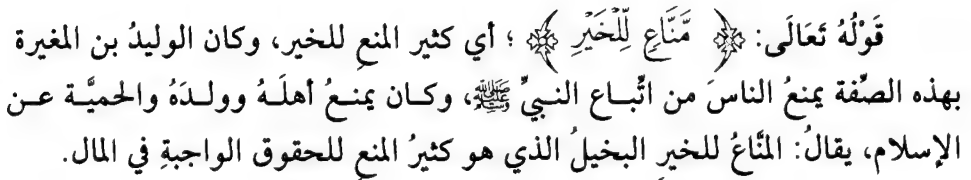 قَوْلُهُ تَعَالَى: ﴿ مَّنَّاعٍ لِّلْخَيْرِ ﴾ ؛ أي كثير المنعِ للخير، وكان الوليدُ بن المغيرة
بهذه الصِّفة يمنعُ الناسَ من اتِّباع النبيِّ ﷺ، وكان يمنعُ أهلَهُ وولدَهُ والحميَّة عن
الإسلام، يقالُ: المنَّاعُ للخيرِ البخيلُ الذي هو كثيرُ المنعِ للحقوق الواجبةِ في المال.